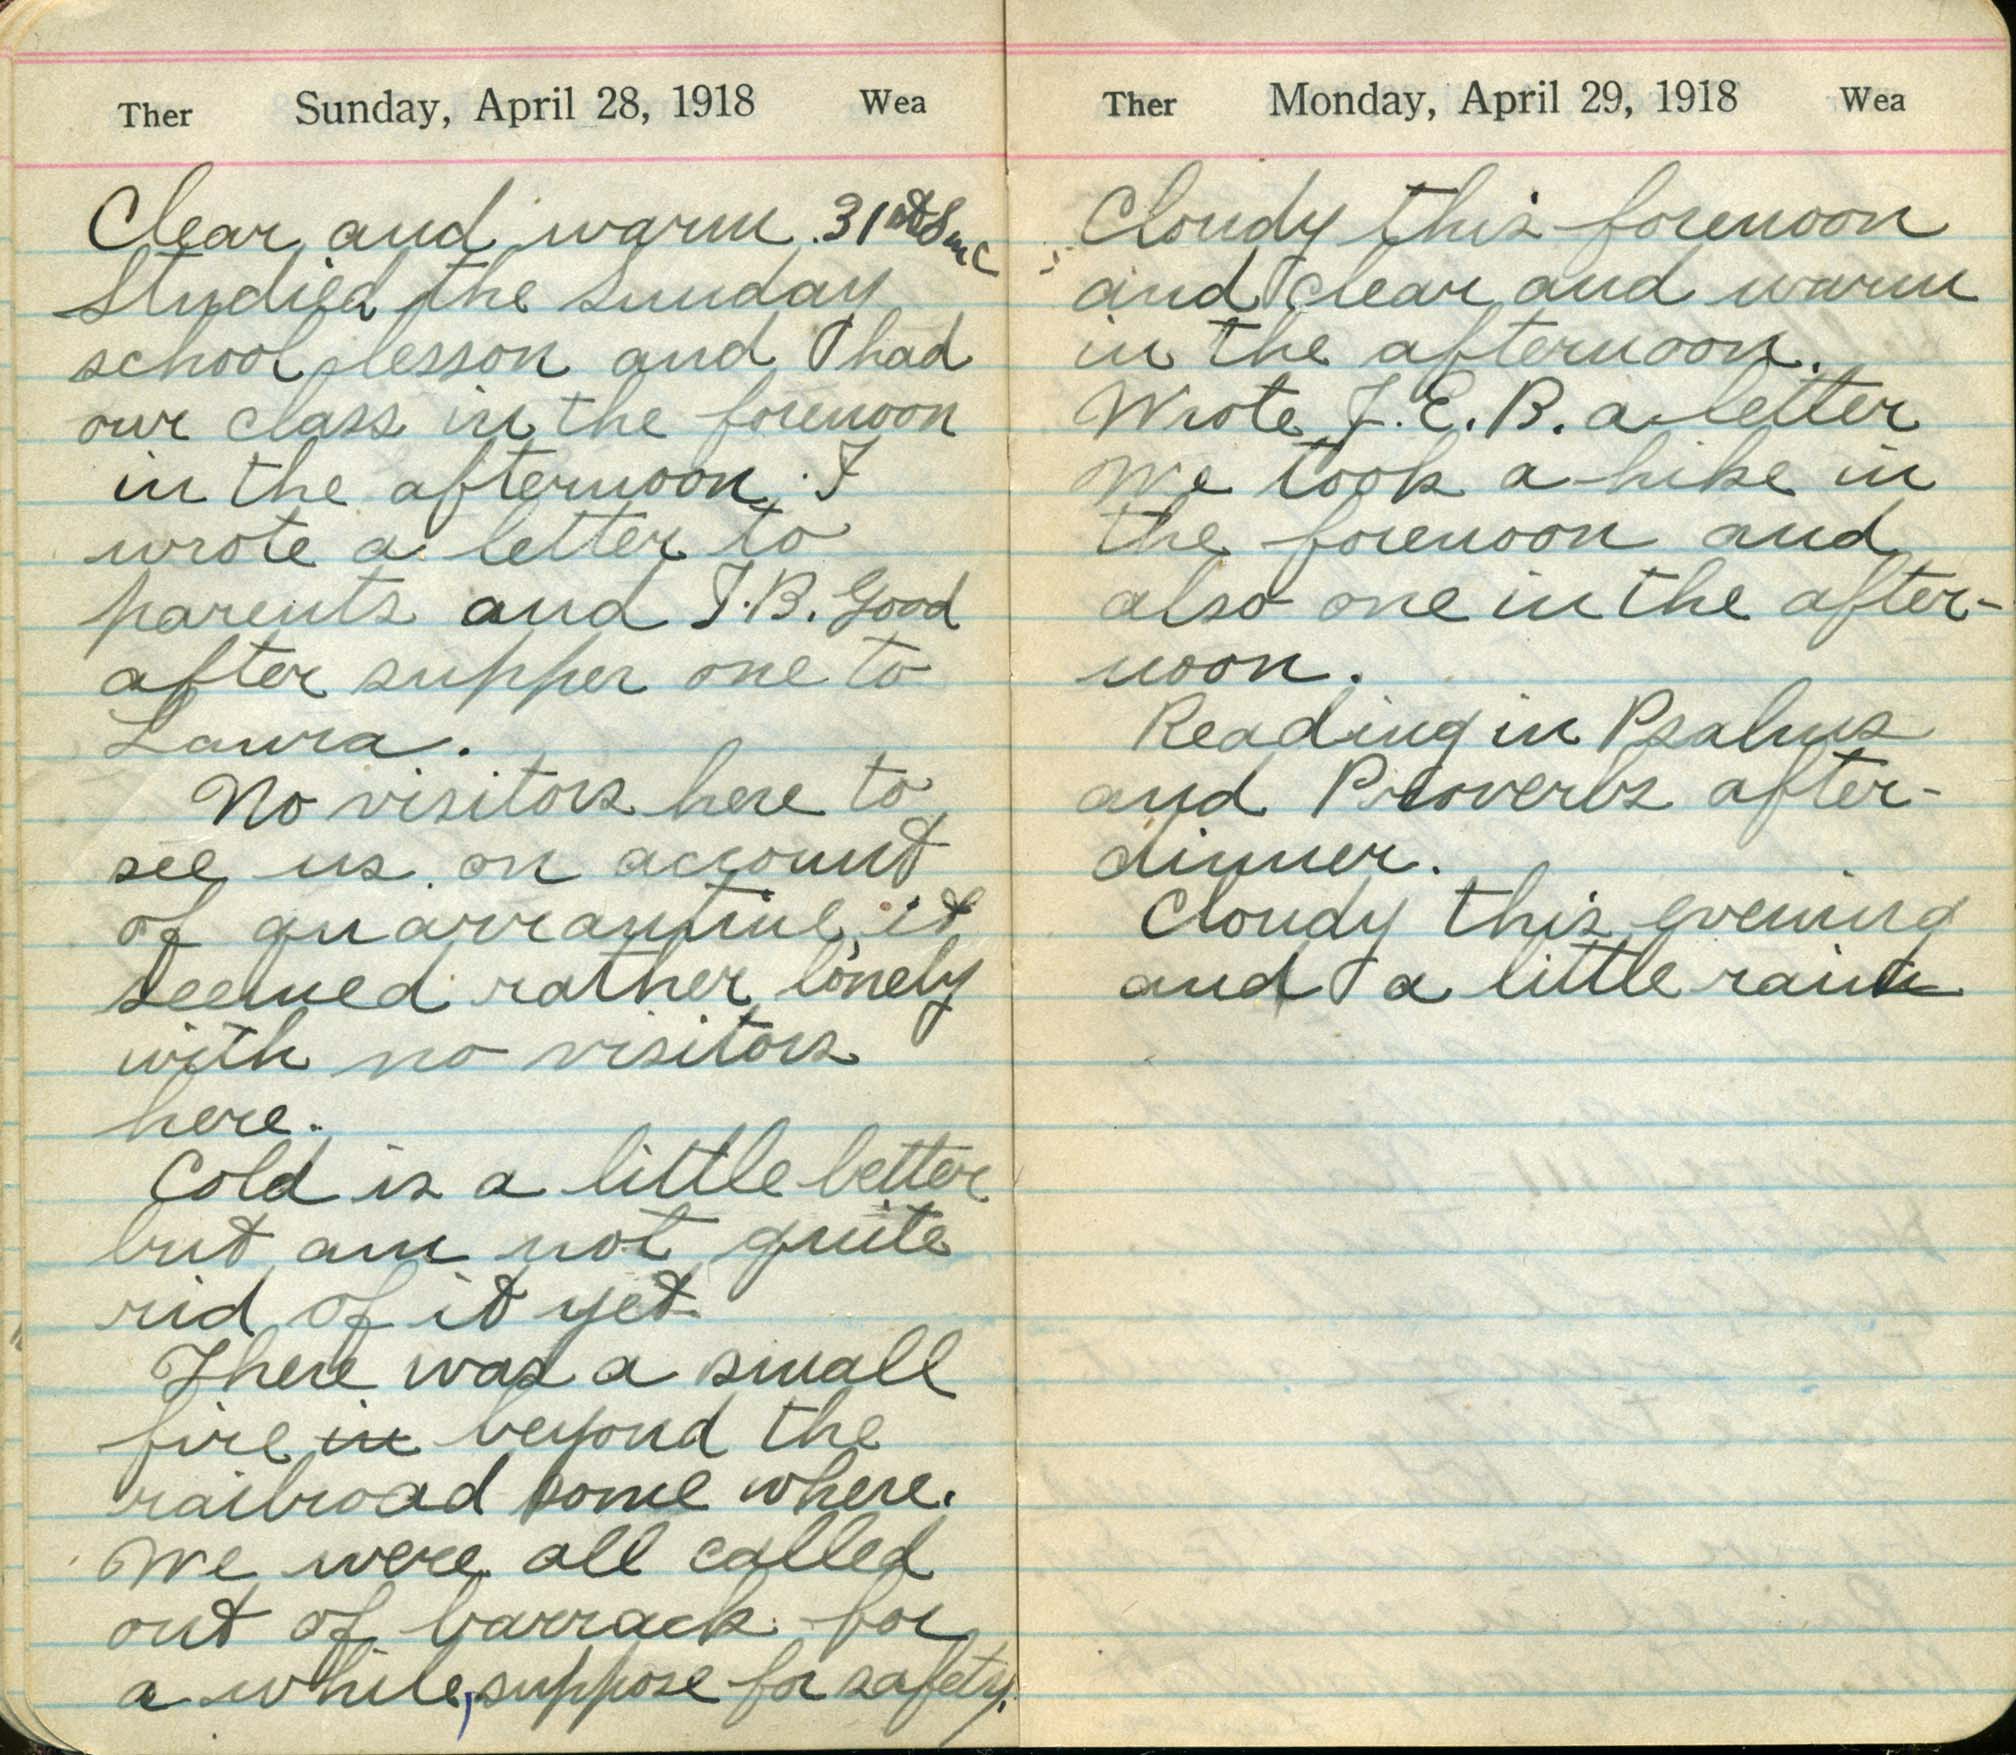 Ther Sunday, April 28, 1918 Wea
Clear and warm. 31st S in C
Studied the Sunday
school lesson and I had
our class in the forenoon
in the afternoon. I
wrote a letter to
parents and J.B. Good
after supper one to
Laura.
No visitors here to
see us on account
of quarrantine, it
seemed rather lonely
with no visitors
here.
Cold is a little better
but am not quite
rid of it yet
There was a small
fire in beyond the
railroad some where.
We were all called
out of barrack for
a while, suppose for safety.
Ther Monday, April 29, 1918 Wea
Cloudy this forenoon
and clear and warm
in the afternoon.
Wrote J.E.B. a letter
We took a hike in
the forenoon and
also one in the after-
noon.
Reading in Psalms
and Proverbs after-
dinner.
Cloudy this evening
and a little rain